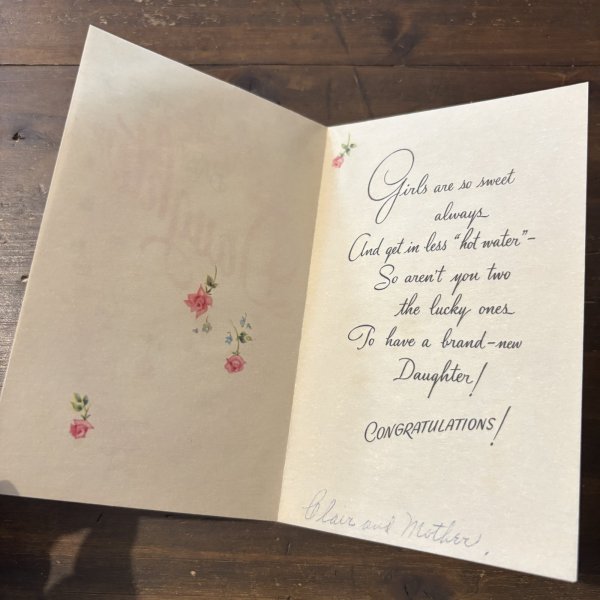 Girls are so sweet
always
And get in less "hot water"–
So aren't you two
the lucky ones
To have a brand-new
Daughter!
CONGRATULATIONS!
Clair and Mother.